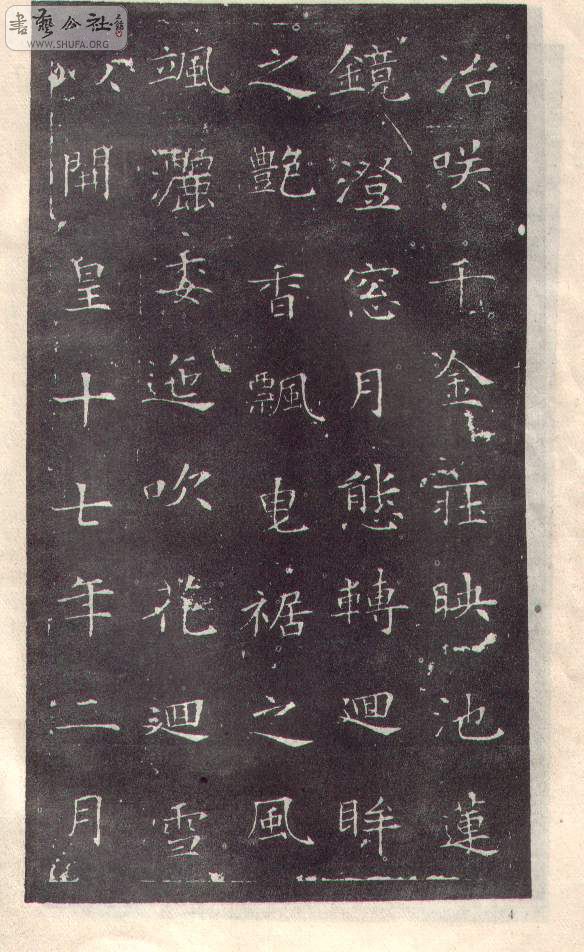 書藝公社
WWW.SHUFA.ORG
冶咲千金莊映池蓮
鏡澄窓月態轉迴眸
之艶香飄曳裾之風
颯灑委迤吹花迴雪
以開皇十七年二月
4